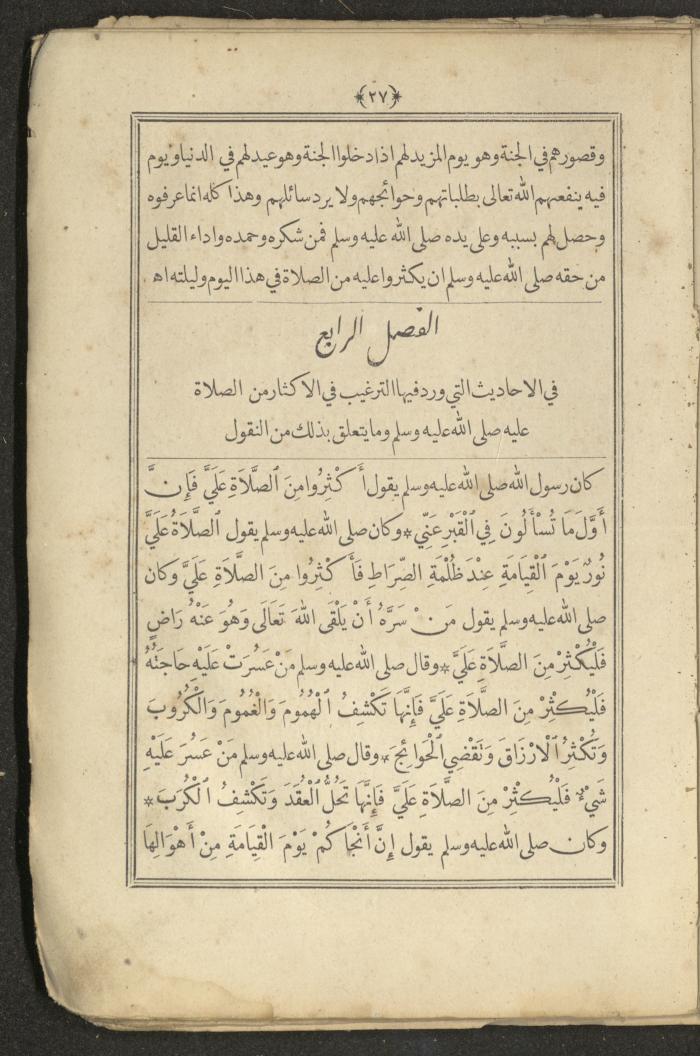 ﴿٢٧﴾
وقصورهم في الجنة وهو يوم المزيد لهم اذا دخلوا الجنة وهو عيد لهم في الدنيا ويوم
فيه ينفعهم الله تعالى بطلباتهم وحوائجهم ولا يرد سائلهم وهذا كله انما عرفوه
وحصل لهم بسببه وعلى يده صلى الله عليه وسلم فمن شكره وحمده واداء القليل
من حقه صلى الله عليه وسلم ان يكثروا عليه من الصلاة في هذا اليوم وليلته اه
الفصل الرابع
في الاحاديث التي ورد فيها الترغيب في الاكثار من الصلاة
عليه صلى الله عليه وسلم وما يتعلق بذلك من النقول
كان رسول الله صلى الله عليه وسلم يقول أَكْثِرُوا مِنَ ٱلصَّلَاةِ عَلَيَّ فَإِنَّ
أَوَّلَ مَا تُسْأَلُونَ فِي ٱلْقَبْرِ عَنِّي * وكان صلى الله عليه وسلم يقول ٱلصَّلَاةُ عَلَيَّ
نُورٌ يَوْمَ ٱلْقِيَامَةِ عِنْدَ ظُلْمَةِ الصِّرَاطِ فَأَكْثِرُوا مِنَ الصَّلَاةِ عَلَيَّ وكان
صلى الله عليه وسلم يقول مَنْ سَرَّهُ أَنْ يَلْقَى اللهَ تَعَالَى وَهُوَ عَنْهُ رَاضٍ
فَلْيُكْثِرْ مِنَ الصَّلَاةِ عَلَيَّ * وقال صلى الله عليه وسلم مَنْ عَسُرَتْ عَلَيْهِ حَاجَتُهُ
فَلْيُكْثِرْ مِنَ الصَّلَاةِ عَلَيَّ فَإِنَّهَا تَكْشِفُ ٱلْهُمُومَ وَالْغُمُومَ وَالْكُرُوبَ
وَتُكْثِرُ ٱلْأَرْزَاقَ وَتَقْضِي ٱلْحَوَائِجَ * وقال صلى الله عليه وسلم مَنْ عَسُرَ عَلَيْهِ
شَيْءٌ فَلْيُكْثِرْ مِنَ الصَّلَاةِ عَلَيَّ فَإِنَّهَا تَحُلُّ ٱلْعُقَدَ وَتَكْشِفُ ٱلْكُرَبَ *
وكان صلى الله عليه وسلم يقول إِنَّ أَنْجَاكُمْ يَوْمَ الْقِيَامَةِ مِنْ أَهْوَالِهَا